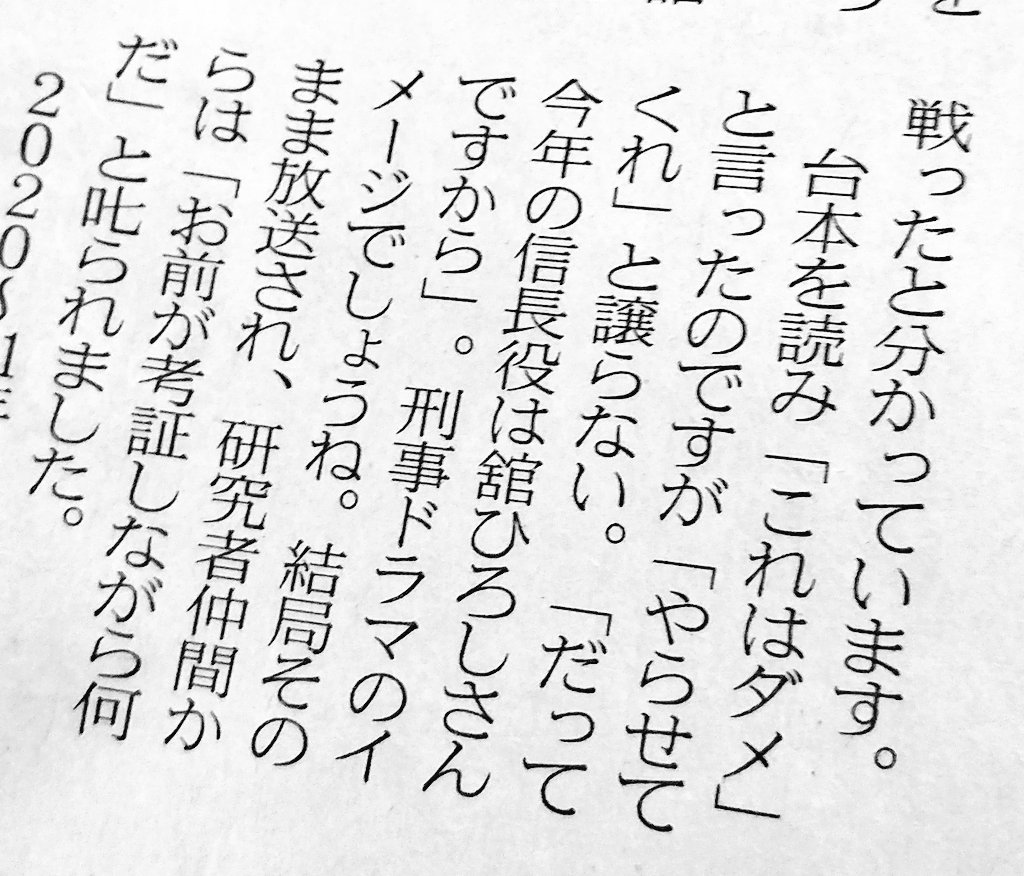 戦ったと分かっています。
台本を読み「これはダメ」
と言ったのですが「やらせて
くれ」と譲らない。「だって
今年の信長役は舘ひろしさん
ですから」。刑事ドラマのイ
メージでしょうね。結局その
まま放送され、研究者仲間か
らは「お前が考証しながら何
だ」と叱られました。
2020〜1